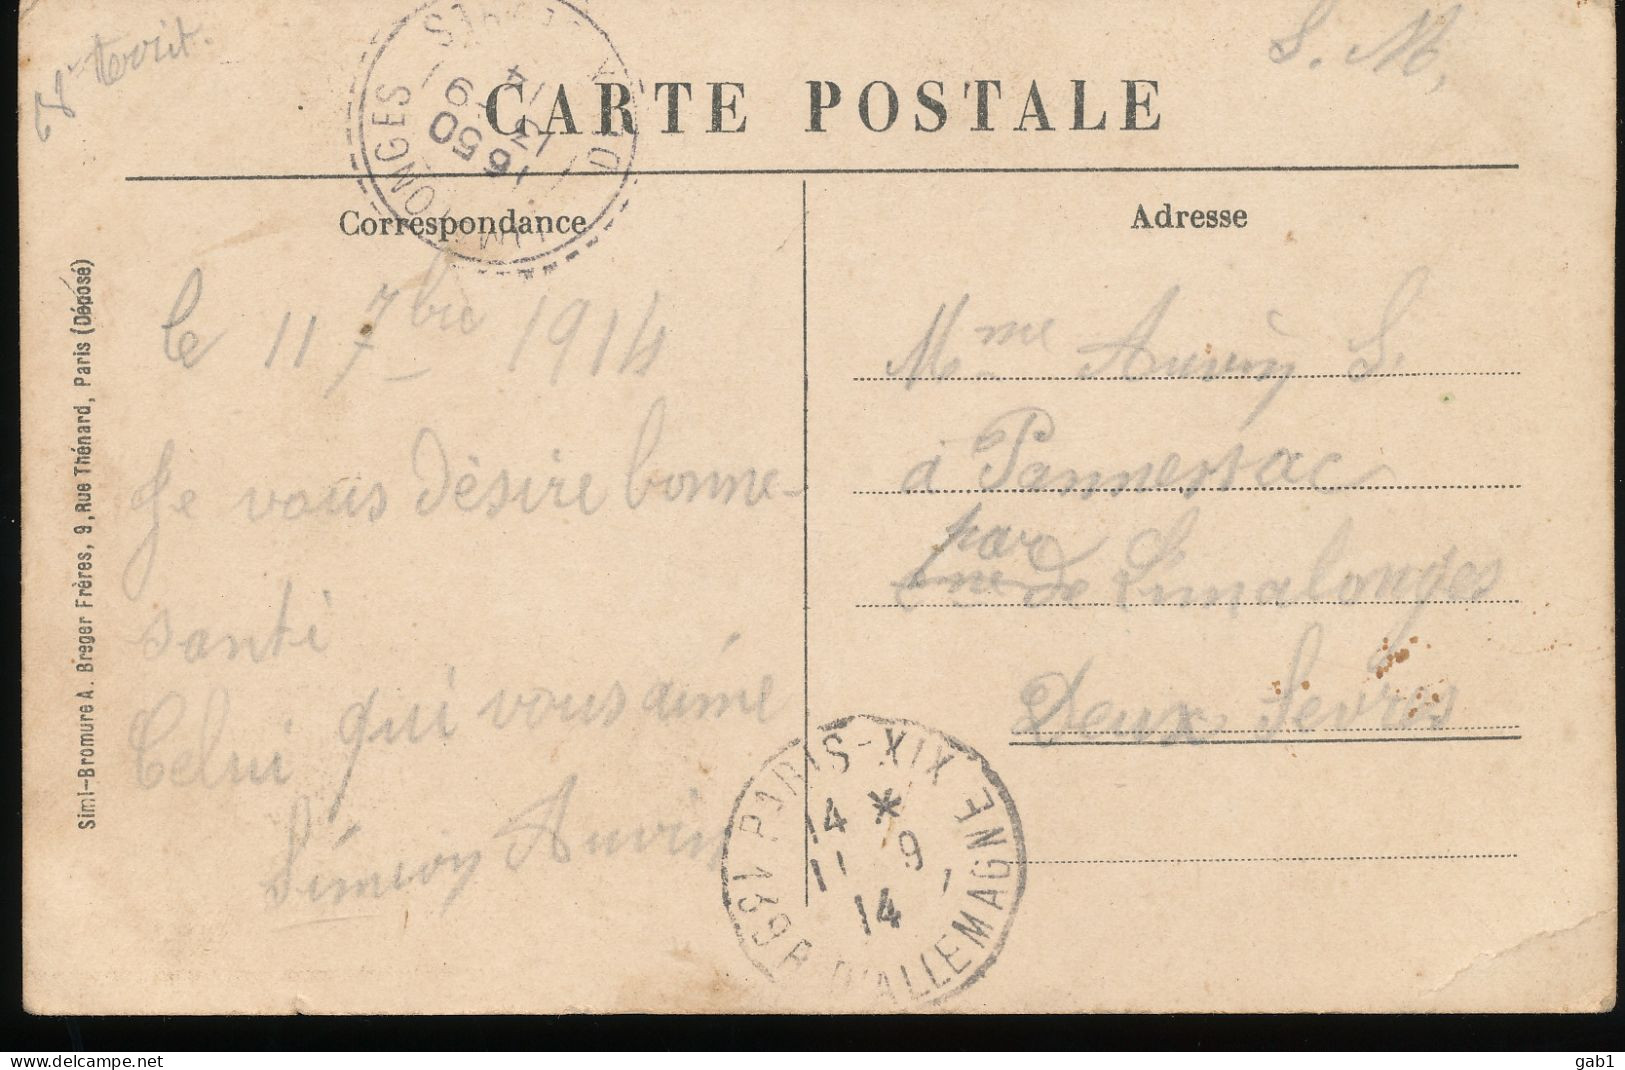 68e Territ.
S. M.
CARTE POSTALE
LIMALONGES
16 50
13 - 9
14
Correspondance
Adresse
Simi-Bromure A. Breger Frères, 9, Rue Thénard, Paris (Déposé)
le 11 7bre 1914
Je vous désire bonne
santé
Celui qui vous aime
Siméon Auvin
Mme Auvin S.
à Pannessac
par
Cne de Limalonges
Deux Sèvres
PARIS-XIX
14 *
11 - 9
14
139 R. D'ALLEMAGNE
delcampe.net
gab1